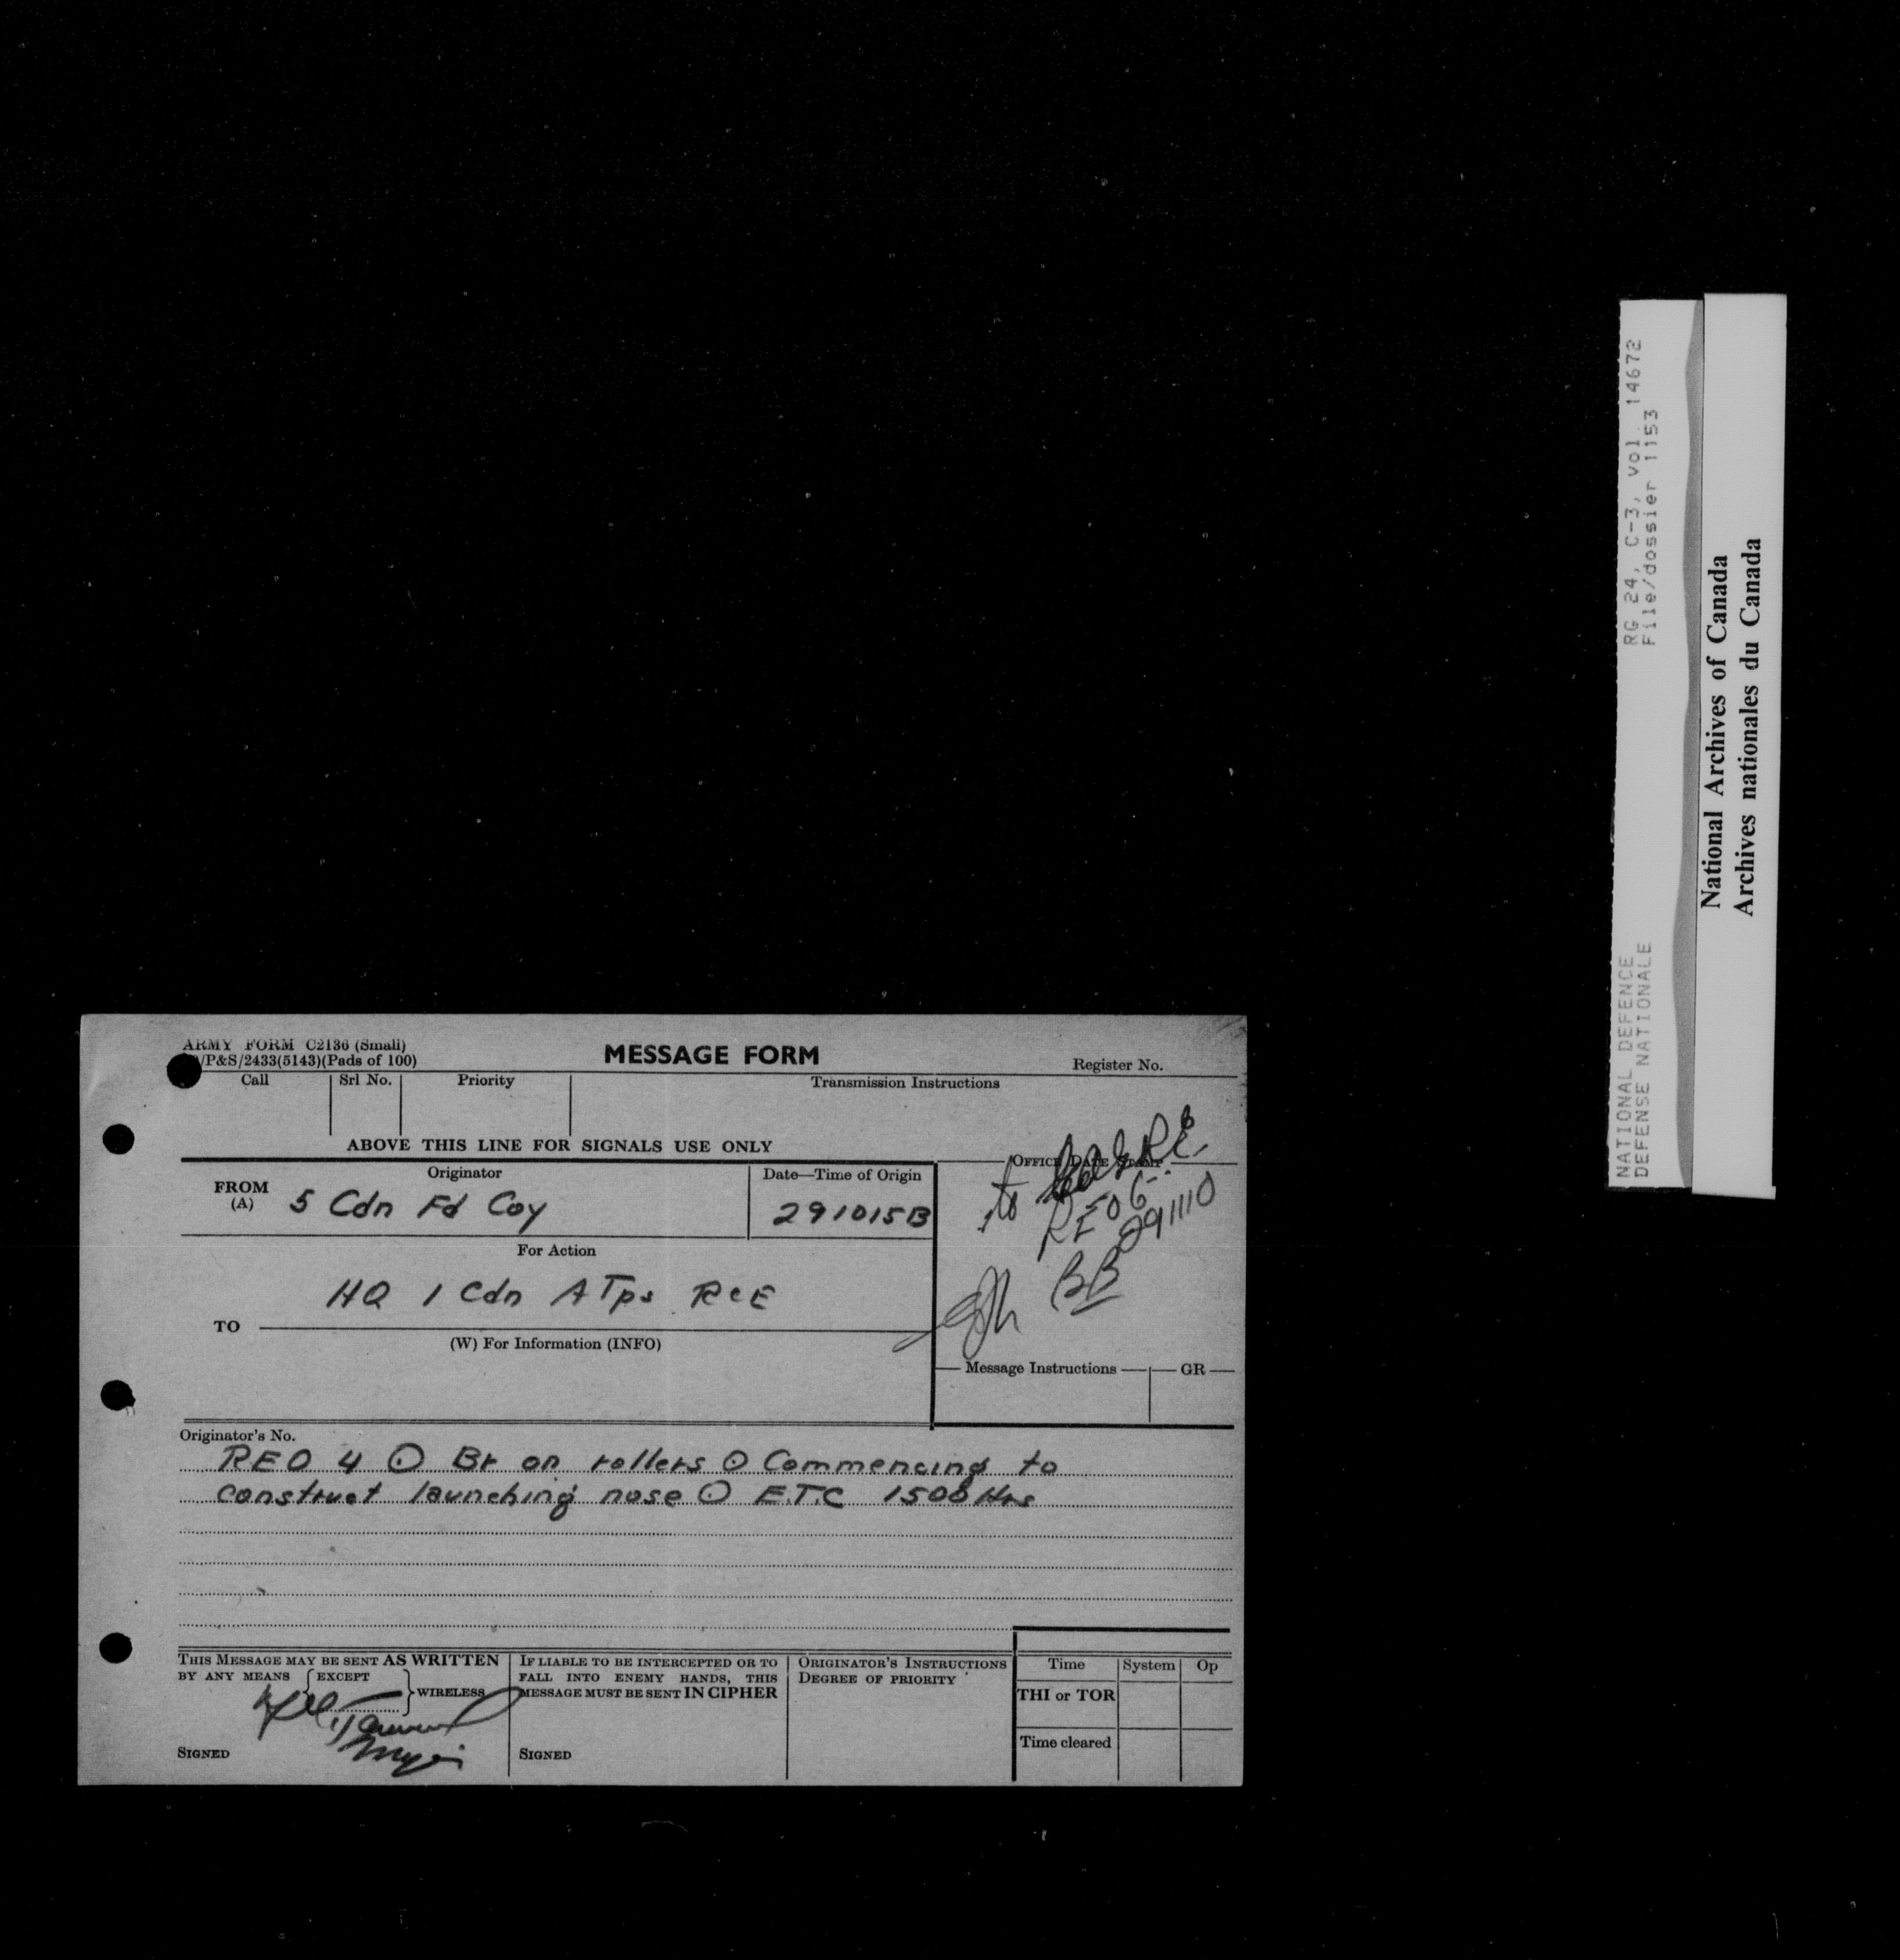 ARMY FORM C2136 (Small)
/P&S/2433(5143)(Pads of 100)
MESSAGE FORM
Register No.
Call Srl No. Priority Transmission Instructions
ABOVE THIS LINE FOR SIGNALS USE ONLY
FROM (A)
Originator
5 Cdn Fd Coy
Date—Time of Origin
291015B
OFFICE DATE STAMP
to
291110
BB
For Action
HQ 1 Cdn A Tps RCE
TO
(W) For Information (INFO)
Message Instructions GR
Originator's No.
REO 4 ⊙ Br on rollers ⊙ Commencing to
construct launching nose ⊙ E.T.C 1500 Hrs
THIS MESSAGE MAY BE SENT AS WRITTEN
BY ANY MEANS EXCEPT
WIRELESS
SIGNED
IF LIABLE TO BE INTERCEPTED OR TO
FALL INTO ENEMY HANDS, THIS
MESSAGE MUST BE SENT IN CIPHER
SIGNED
ORIGINATOR'S INSTRUCTIONS
DEGREE OF PRIORITY
Time System Op
THI or TOR
Time cleared
NATIONAL DEFENCE RG 24, C-3, vol. 14672
DEFENSE NATIONALE File/dossier 1153
National Archives of Canada
Archives nationales du Canada